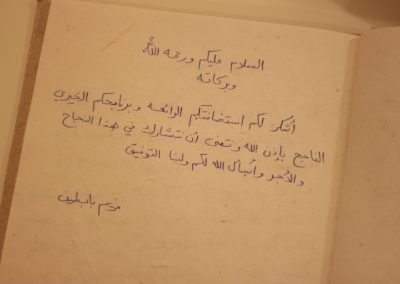 السلام عليكم ورحمة الله
وبركاته
أشكر لكم إستضافتكم الرائعه وبرنامجكم الخيري
الناجح بإذن الله ونتمنى أن نتشارك في هذا النجاح
والأجر وأسأل الله لكم ولنا التوفيق
مريم